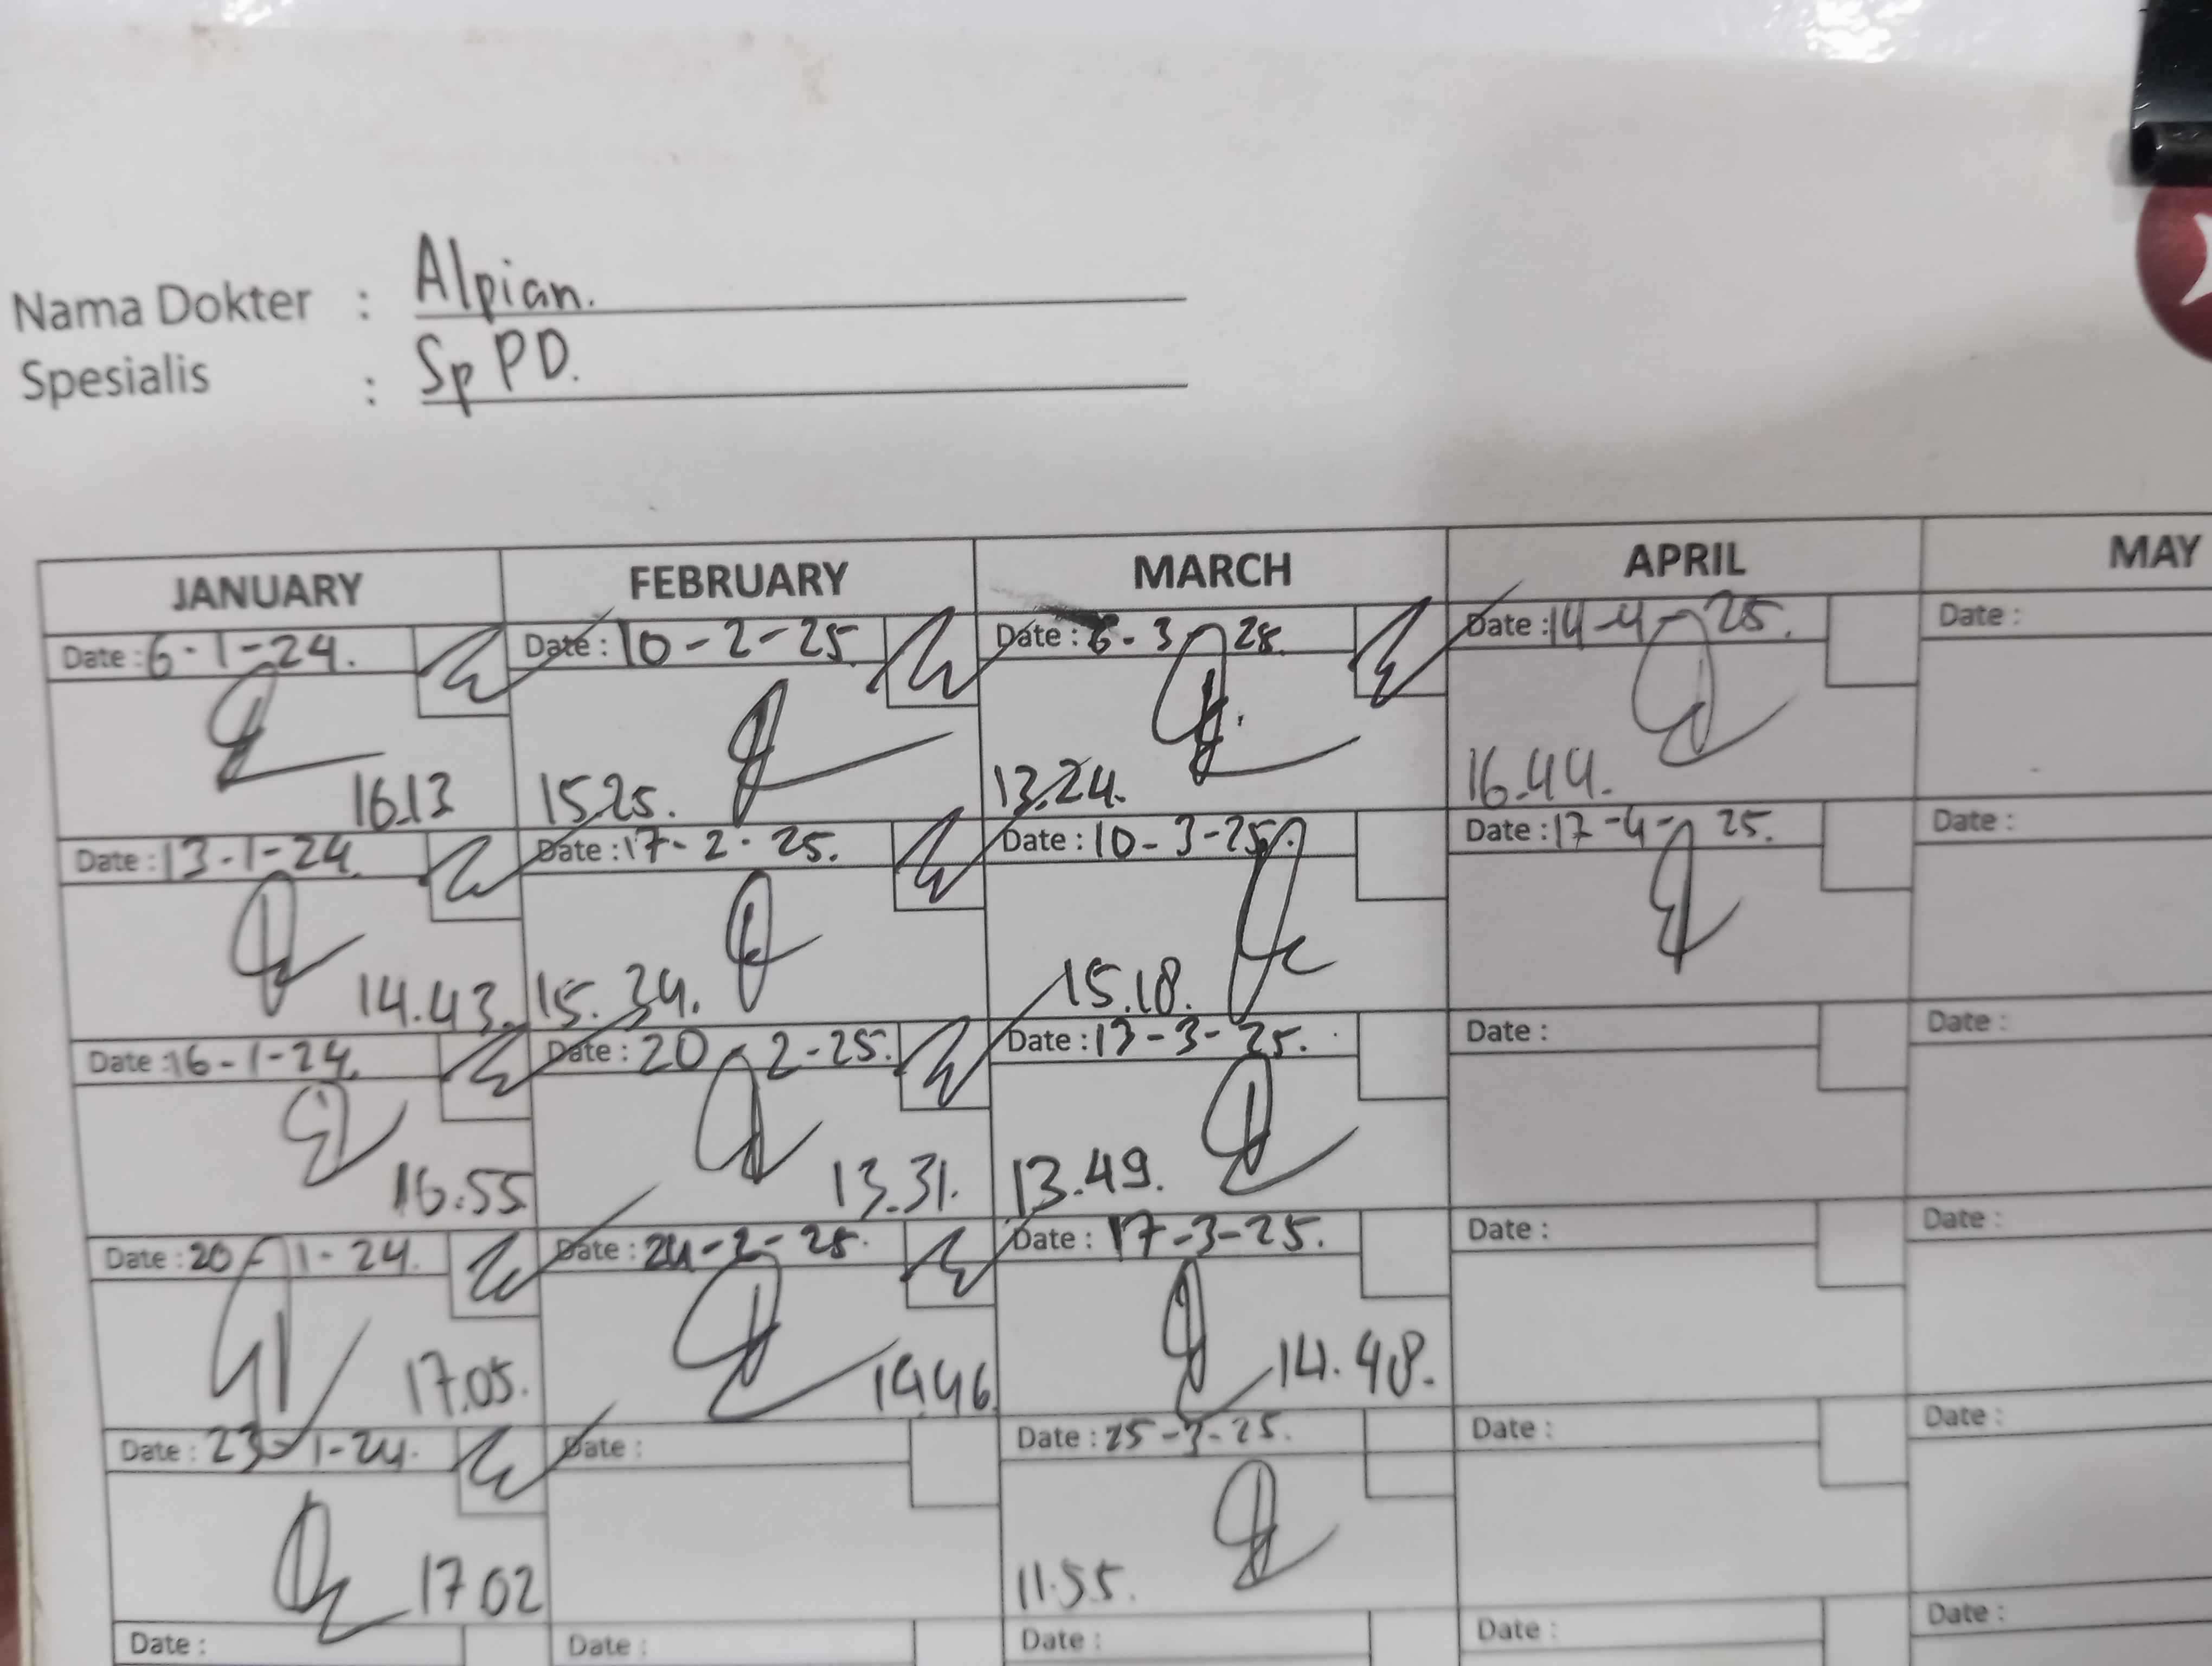 Nama Dokter : Alpian.
Spesialis : Sp PD.
JANUARY FEBRUARY MARCH APRIL MAY
Date : 6-1-24. Date : 10-2-25 Date : 6-3 25. Date : 14-4-25. Date :
16.13 15.25. 13.24. 16.44.
Date : 13-1-24. Date : 17-2-25. Date : 10-3-25 Date : 17-4-25. Date :
14.43. 15.34. 15.18.
Date : 16-1-24. Date : 20-2-25. Date : 13-3-25. Date : Date :
16.55 13.31. 13.49.
Date : 20-1-24. Date : 24-2-25. Date : 17-3-25. Date : Date :
17.05. 14.46 14.48.
Date : 23-1-24. Date : Date : 25-3-25. Date : Date :
17 02 11.55.
Date : Date : Date : Date : Date :